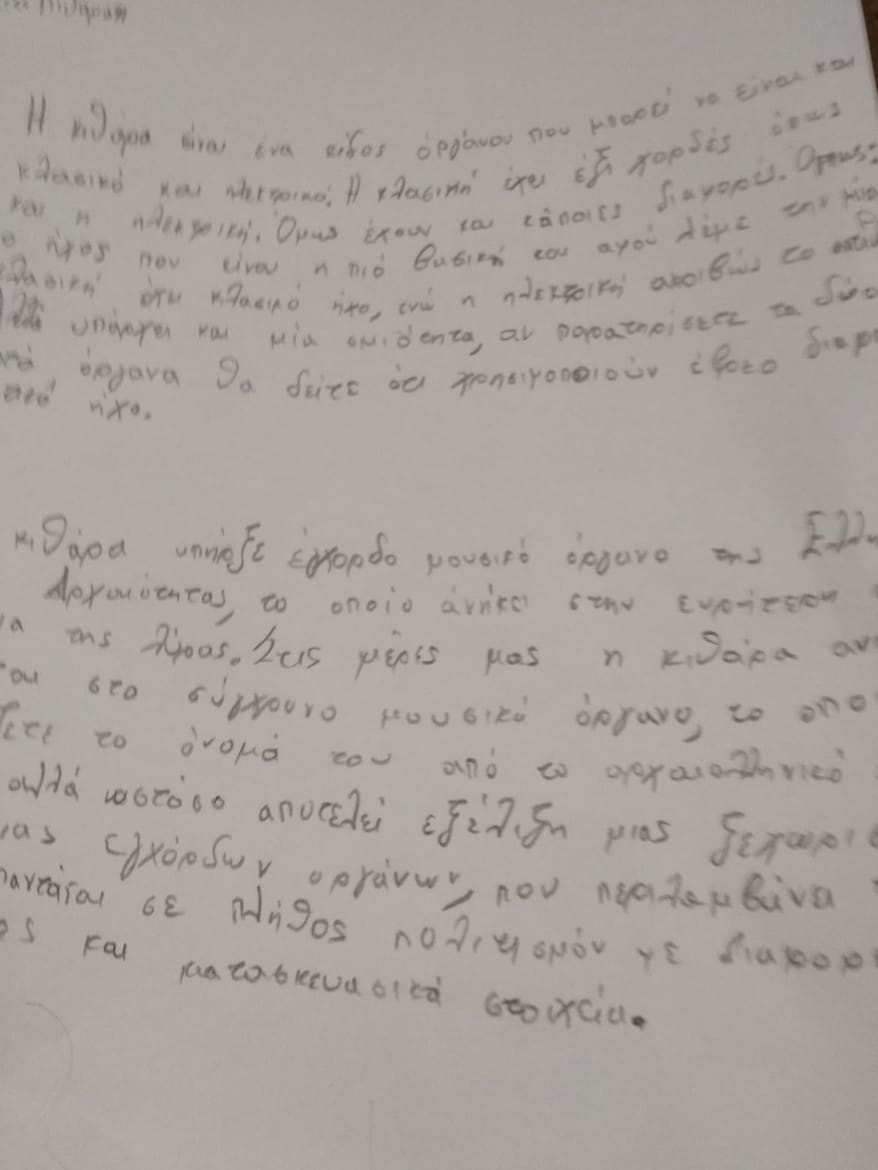 Η κιθάρα είναι ένα είδος όργάνου που μπορεί να είναι και
κλασικό και ηλεκτρικό. Η κλασική έχει έξι χορδές όπως
και η ηλεκτρική. Όμως έχουν και κάποιες διαφορές. Όπως:
ο ήχος που είναι η πιό βασική και αφού λέμε την μία
κλασική έχει κλασικό ήχο, ενώ η ηλεκτρική ακριβώς το
υπάρχει και μία ομιδεητα, αν παρατηρίσετε τα δύο
όργανα θα δείτε ότι χρησιμοποιούν έφοσο
ήχο.
κιθάρα υπήρξε έγχορδο μουσικό όργανο της
Αρχαιότητας, το οποίο άνήκει στην
της λύρας. Στις μέρες μας η κιθάρα
στο σύγχρονο μουσικό όργανο, το
το όνομά του από το αρχαιοελληνικό
αλλά ωστόσο αποτελεί εξέλιξη μιας
εγχόρδων οργάνων, που περιλαμβάνει
σε πλήθος πολιτισμόν με
και κατασκευασικά στοιχεία.